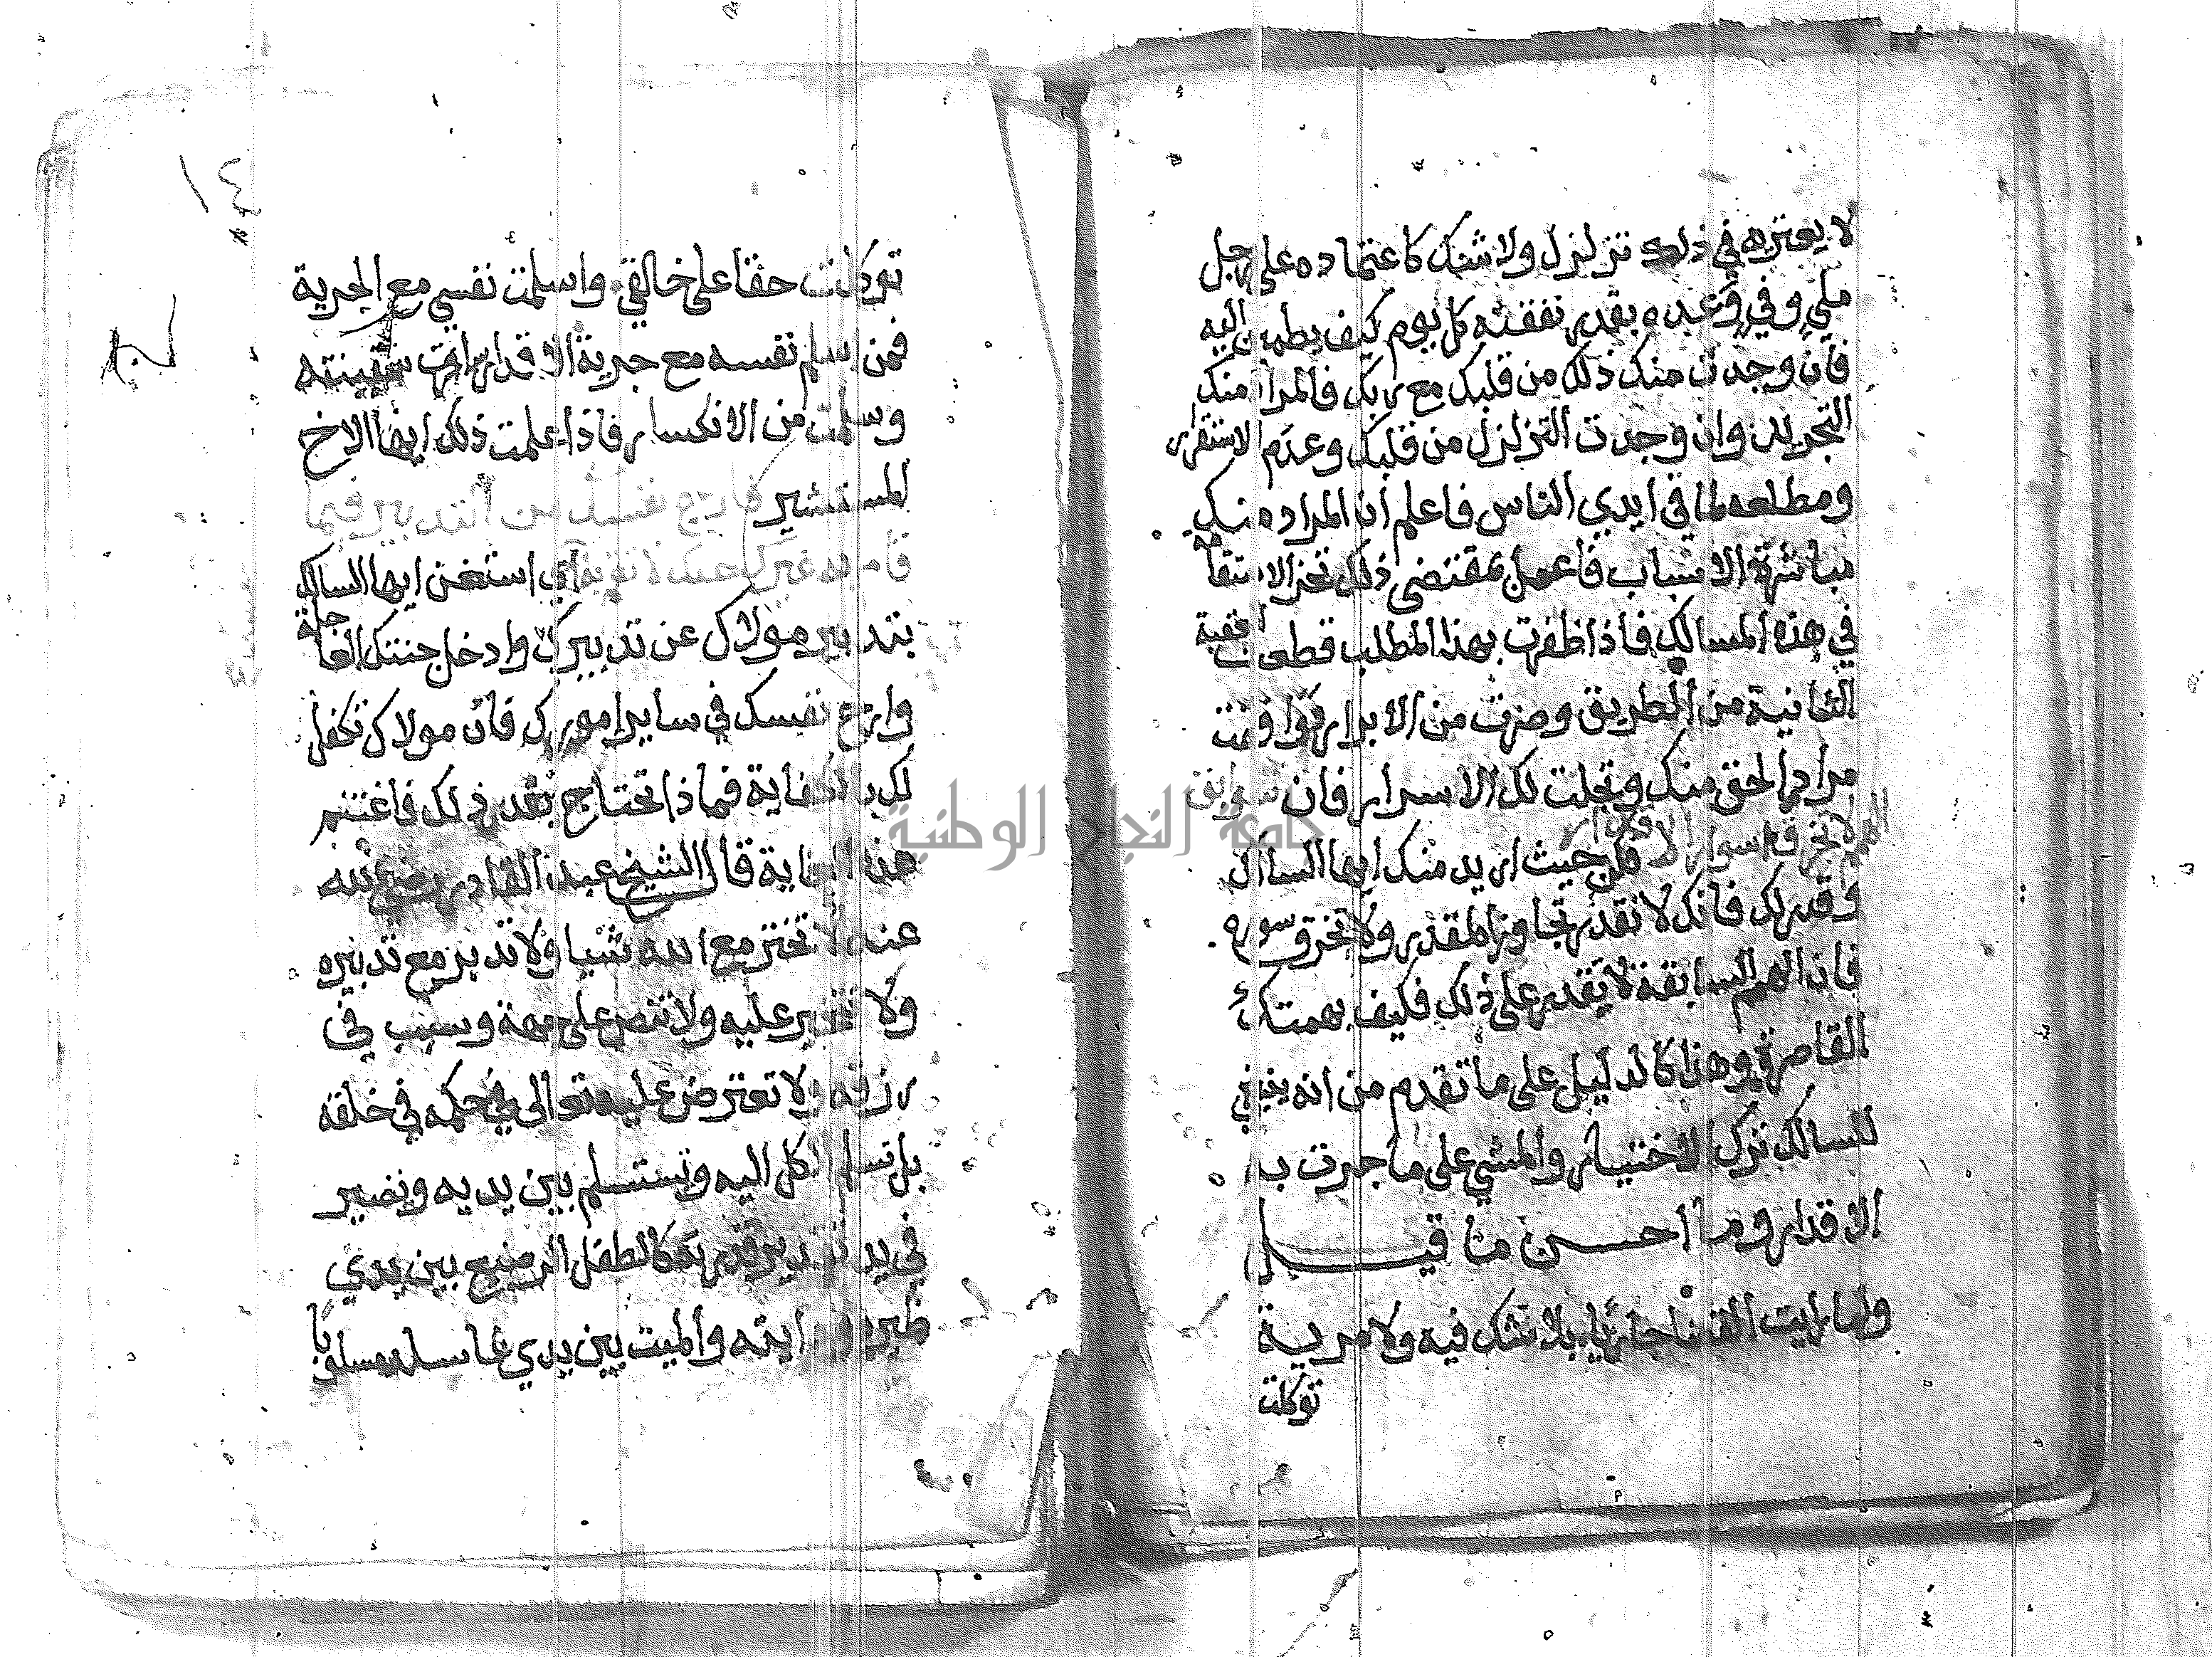 لا يعتريه في ذلك تزلزل ولا شك كاعتماده على رجل
ملي وفي وعده بقدر نفقته كل يوم كيف يطمئن اليه
فان وجدت منك ذلك من قلبك مع ربك فالمراد منك
التجريد وان وجدت التزلزل من قلبك وعدم الاستقرار
ومطلعه لما في ايدي الناس فاعلم ان المراد منك
مباشرة الاسباب فاعمل بمقتضى ذلك تحز الاستقامة
في هذه المسالك فاذا ظفرت بهذا المطلب قطعت العقبة
الثانية من الطريق وصرت من الابرار ووافقت
مراد الحق منك وتجلت لك الاسرار فان سوابق
الهمم لا تخرق اسوار الاقدار حيث اريد منك ايها السالك
وقدر لك فانك لا تقدر تجاوز المقدر ولا تخرق سوره
فان الهمم السابقة لا تقدر على ذلك فكيف بهمتك
القاصرة وهذا كالدليل على ما تقدم من انه ينبغي
للسالك ترك الاختيار والمشي على ما جرت به
الاقدار وما احسن ما قيل
ولما رايت القضا جاريا بلا شك فيه ولا مرية
توكلت
١٤
توكلت حقا على خالقي واسلمت نفسي مع الجرية
فمن اسلم نفسه مع جرية الاقدار سارت سفينته
وسلمت من الانكسار فاذا علمت ذلك ايها الاخ
المستشير فارح نفسك من التدبير فما
قام به غيرك عنك لا تقم به اي استغن ايها السالك
بتدبير مولاك عن تدبيرك وادخل جنتك العاجلة
وارح نفسك في ساير امورك فان مولاك تكفل
لك بالكفاية فماذا تحتاج بعد ذلك فاغتنم
هذه العناية قال الشيخ عبد القادر رضي الله
عنه لا تختر مع الله شيا ولا تدبر مع تدبيره
ولا على جهة وسبب في
رزقه ولا تعترض عليه تعالى في حكمه في خلقه
بل تسلم الكل اليه وتستسلم بين يديه وتصير
في يد تدبير قدرته كالطفل الرضيع بين يدي
ظيره ودايته والميت بين يدي غاسله